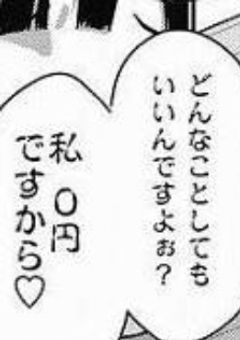 どんなことしても
いいんですよぉ？
私　０円
ですから♡